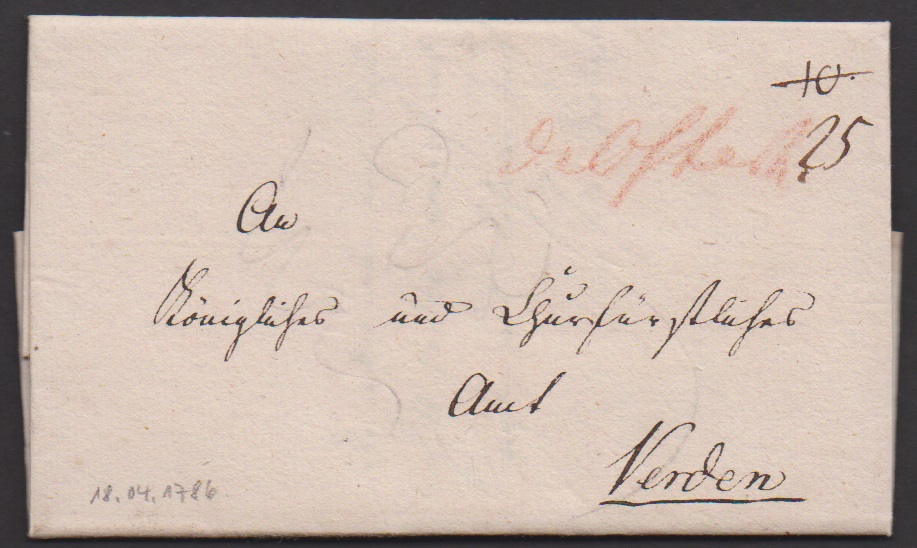 10.
25
An
Königliches und Churfürstliches
Amt
Verden
18.04.1786